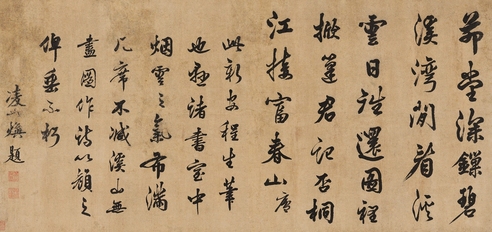 茆堂深鏁碧
溪灣閒看溪
雲日往還圖裡
掀篷君記否桐
江接富春山
此新安程生筆
也懸諸書室中
烟雲之氣布滿
几席不減溪山無
盡圖作詩以顏之
俾垂不朽
凌如煥題